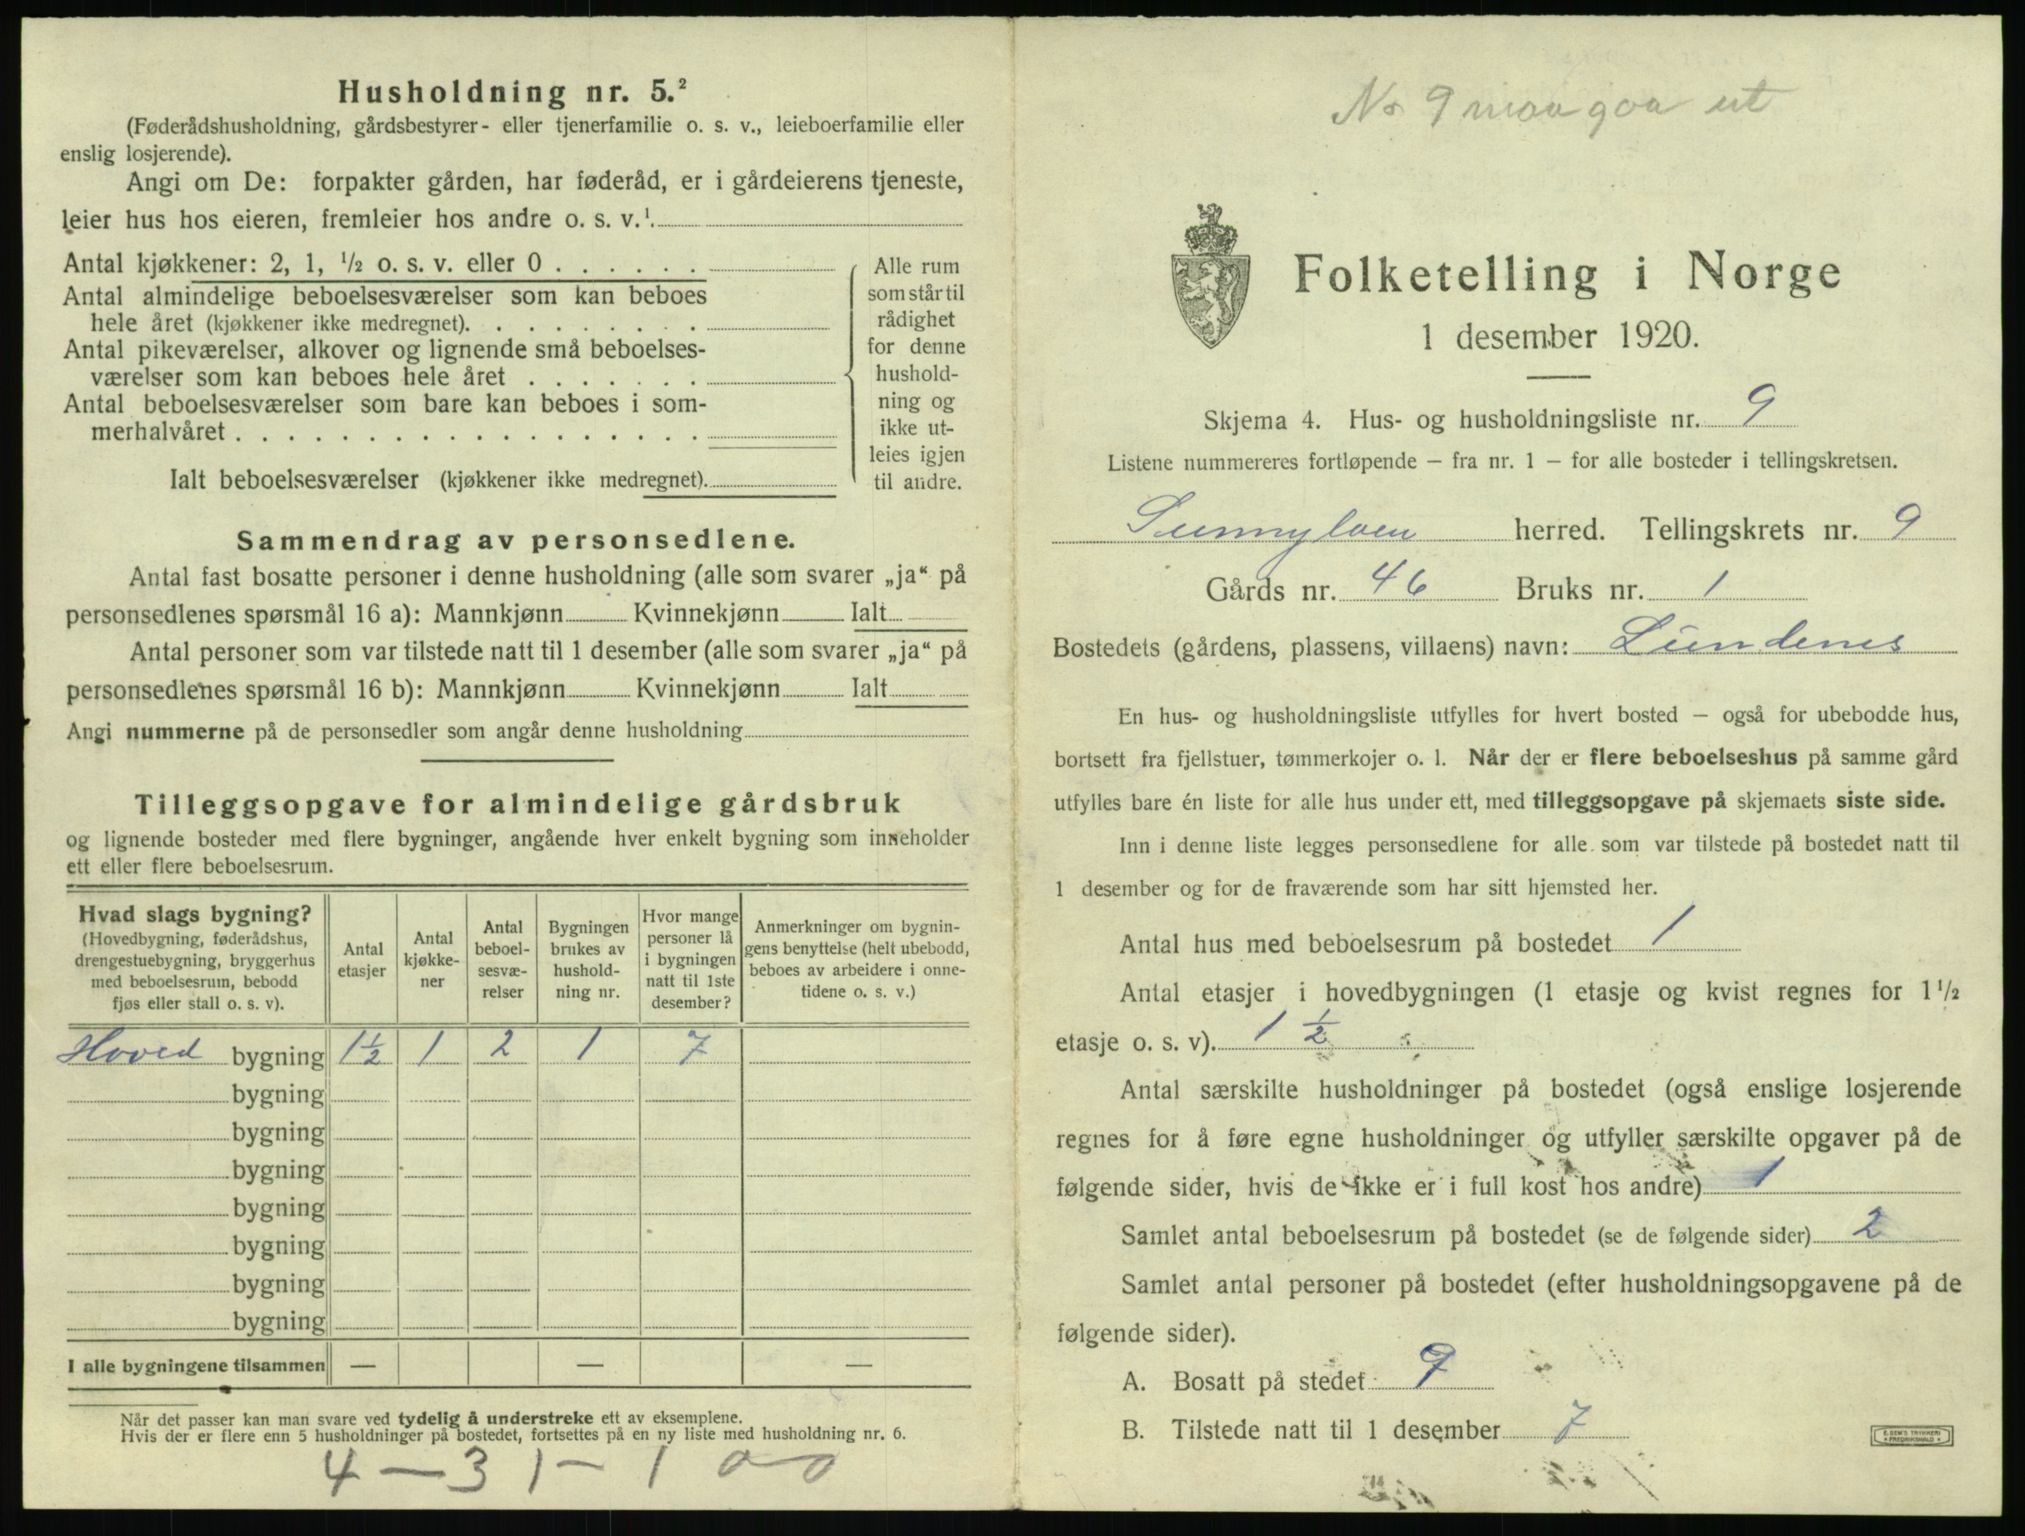 Husholdning nr. 5.²
(Føderådshusholdning, gårdsbestyrer- eller tjenerfamilie o. s. v., leieboerfamilie eller
enslig losjerende).
Angi om De: forpakter gården, har føderåd, er i gårdeierens tjeneste,
leier hus hos eieren, fremleier hos andre o. s. v.¹.
Antal kjøkkener: 2, 1, ½ o. s. v. eller 0 . . . . . .
Antal almindelige beboelsesværelser som kan beboes
hele året (kjøkkener ikke medregnet). . . . . . . . .
Antal pikeværelser, alkover og lignende små beboelses-
værelser som kan beboes hele året . . . . . . .
Antal beboelsesværelser som bare kan beboes i som-
merhalvåret . . . . . . . . . . . . . . . . . .
Ialt beboelsesværelser (kjøkkener ikke medregnet).
Alle rum
som står til
rådighet
for denne
hushold-
ning og
ikke ut-
leies igjen
til andre.
Sammendrag av personsedlene.
Antal fast bosatte personer i denne husholdning (alle som svarer „ja“ på
personsedlenes spørsmål 16 a): Mannkjønn Kvinnekjønn Ialt
Antal personer som var tilstede natt til 1 desember (alle som svarer „ja“ på
personsedlenes spørsmål 16 b): Mannkjønn Kvinnekjønn Ialt
Angi nummerne på de personsedler som angår denne husholdning
Tilleggsopgave for almindelige gårdsbruk
og lignende bosteder med flere bygninger, angående hver enkelt bygning som inneholder
ett eller flere beboelsesrum.
Hvad slags bygning?
(Hovedbygning, føderådshus,
drengestuebygning, bryggerhus
med beboelsesrum, bebodd
fjøs eller stall o. s. v).
Antal
etasjer
Antal
kjøkke-
ner
Antal
beboel-
sesvæ-
relser
Bygningen
brukes av
hushold-
ning nr.
Hvor mange
personer lå
i bygningen
natt til 1ste
desember?
Anmerkninger om bygnin-
gens benyttelse (helt ubebodd,
beboes av arbeidere i onne-
tidene o. s. v.)
Hoved bygning 1½ 1 2 1 7
bygning
bygning
bygning
bygning
bygning
bygning
bygning
I alle bygningene tilsammen — — —
Når det passer kan man svare ved tydelig å understreke ett av eksemplene.
Hvis der er flere enn 5 husholdninger på bostedet, fortsettes på en ny liste med husholdning nr. 6.
4 — 31 — 1 0—0
No 9 maa gaa ut
Folketelling i Norge
1 desember 1920.
Skjema 4. Hus- og husholdningsliste nr. 9
Listene nummereres fortløpende – fra nr. 1 – for alle bosteder i tellingskretsen.
Sunnylven herred. Tellingskrets nr. 9
Gårds nr. 46 Bruks nr. 1
Bostedets (gårdens, plassens, villaens) navn: Lundenes
En hus- og husholdningsliste utfylles for hvert bosted – også for ubebodde hus,
bortsett fra fjellstuer, tømmerkojer o. l. Når der er flere beboelseshus på samme gård
utfylles bare én liste for alle hus under ett, med tilleggsopgave på skjemaets siste side.
Inn i denne liste legges personsedlene for alle som var tilstede på bostedet natt til
1 desember og for de fraværende som har sitt hjemsted her.
Antal hus med beboelsesrum på bostedet 1
Antal etasjer i hovedbygningen (1 etasje og kvist regnes for 1½
etasje o. s. v). 1½
Antal særskilte husholdninger på bostedet (også enslige losjerende
regnes for å føre egne husholdninger og utfyller særskilte opgaver på de
følgende sider, hvis de ikke er i full kost hos andre) 1
Samlet antal beboelsesrum på bostedet (se de følgende sider) 2
Samlet antal personer på bostedet (efter husholdningsopgavene på de
følgende sider).
A. Bosatt på stedet 9
B. Tilstede natt til 1 desember 7
E. SEM'S TRYKKERI
FREDRIKSHALD